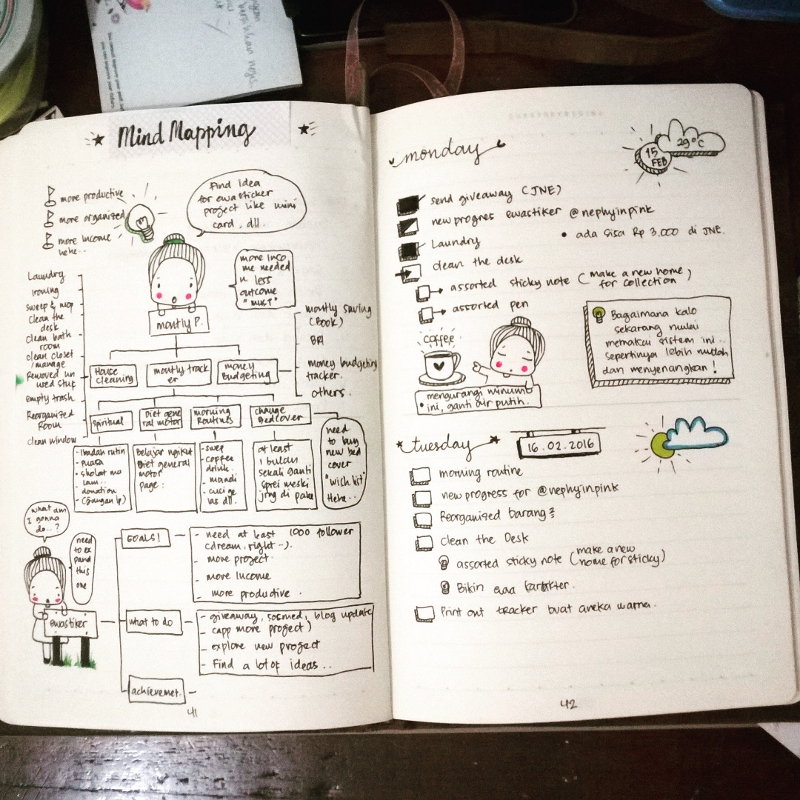 Mind Mapping
more productive
more organized
more Income
hehe..
Find idea
for ewasticker
project like mini
card, dll.
more inco
me needed
n less
outcome
"MUST"
montly P.
Laundry
Ironing
sweep & mop
clean the
desk
clean bath
room
clean closet
/manage
Removed un
used stuf
empty trash
Reorganized
Room
clean window
montly saving
(BOOK)
BRI
money budgeting
tracker.
others.
House
cleaning
montly track
er
money
budgeting
Spiritual
Diet gene
ral motor
morning
Routines
change
Bedcover
- Ibadah rutin
- Puasa
- sholat ma
lam..
- donation
Belajar ngikut
Diet general
motor
page:
- sweep
- coffee
drink.
- mandi
- cuci ge
las dll.
at least
1 bulan
sekali ganti
sprei meski
jrng di pake
need
to buy
new bed
cover
"wish list"
Hehe..
what am
I gonna
do..?
need
to ex
pand
this
one
ewastiker
GOALS!
- need at least 1000 follower
(dream, right ..).
- more project.
- more Income
- more productive.
what to do
- giveaway, sosmed, blog update
- capp more project)
- explore new project
- Find a lot of ideas..
achievemet.
41
monday
15
FEB
29°C
send giveaway (JNE)
new progres ewastiker @nephyinpink
• ada sisa Rp 3.000 di JNE.
Laundry
clean the desk
assorted sticky note (make a new home)
for collection
assorted pen
coffee
mengurangi minum
ini, ganti air putih.
Bagaimana kalo
sekarang mulai
memakai sistem ini..
sepertinya lebih mudah
dan menyenangkan!
tuesday
16.02.2016
morning routine
new progress for @nephyinpink
Reorganised barang²
Clean the Desk
assorted sticky note (make a new
home for sticky)
Bikin ewa karakter.
Print out tracker buat aneka warna.
42